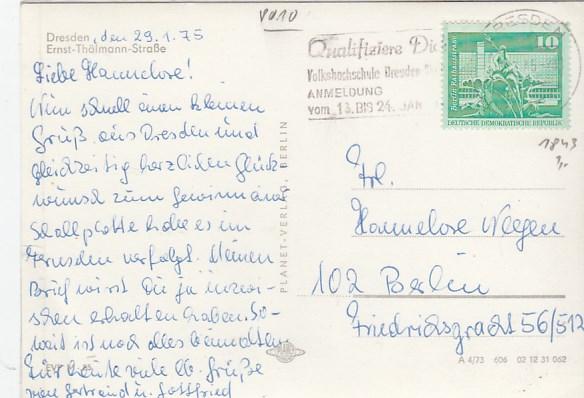 8010
Dresden, den 29.1.75
Ernst-Thälmann-Straße
Liebe Hannelore!
Nun schnell einen kleinen
Gruß aus Dresden und
gleichzeitig herzlichen Glück-
wunsch zum Gewinn
Schallplatte habe es im
Fernsehen verfolgt. Meinen
Brief wirst Du ja inzwi-
schen erhalten haben. So-
weit ist noch alles beim alten.
Für heute viele lb. Grüße
von Gertraud u. Gottfried
PLANET-VERLAG, BERLIN
Qualifiziere Di
Volkshochschule Dresden
ANMELDUNG
vom 13. BIS 24. JAN
DRESDEN
10
DEUTSCHE DEMOKRATISCHE REPUBLIK
1843
3,-
Frl.
Hannelore
102 Berlin
Friedrichsgracht 56/512
A 4/73 606 02 12 31 062